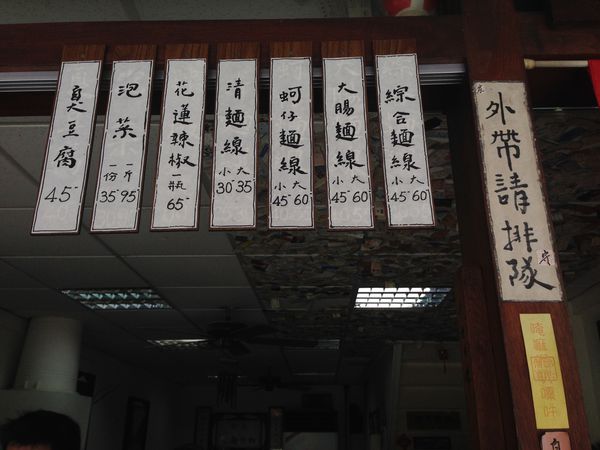 臭豆腐
45
泡菜
一份 35
一斤 95
花蓮辣椒
一瓶
65
清麵線
小 30
大 35
蚵仔麵線
小 45
大 60
大腸麵線
小 45
大 60
綜合麵線
小 45
大 60
外帶請排隊